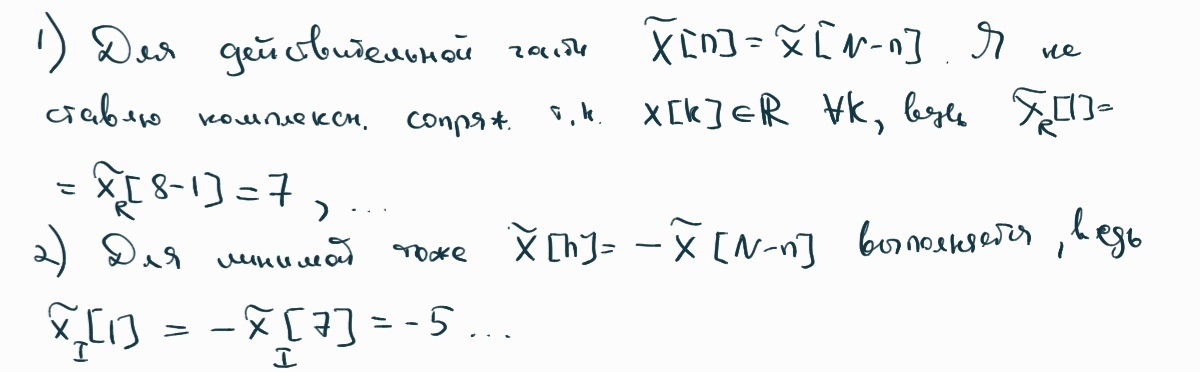 1) Для действительной части x̃[n] = x̃[N-n]. Я не
ставлю комплексн. сопряж. т.к. x[k]∈ℝ ∀k, ведь x̃_R[1]=
= x̃_R[8-1] = 7, ...
2) Для мнимой тоже x̃[n] = - x̃[N-n] выполняется, ведь
x̃_I[1] = - x̃_I[7] = -5 ...